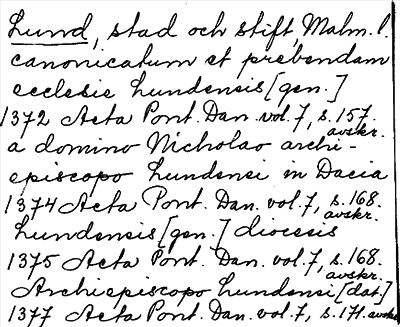 Lund, stad och stift Malm. l.
canonicatum et prebendam
ecclesie Lundensis [gen.]
1372 Acta Pont. Dan. vol. 7, s. 157.
avskr.
a domino Nicholao archi-
episcopo Lundensi in Dacia
1374 Acta Pont. Dan. vol. 7, s. 168.
avskr.
Lundensis [gen.] diocesis
1375 Acta Pont. Dan. vol. 7, s. 168.
avskr.
Archiepiscopo Lundensi [dat.]
1377 Acta Pont. Dan. vol. 7, s. 171. avskr.